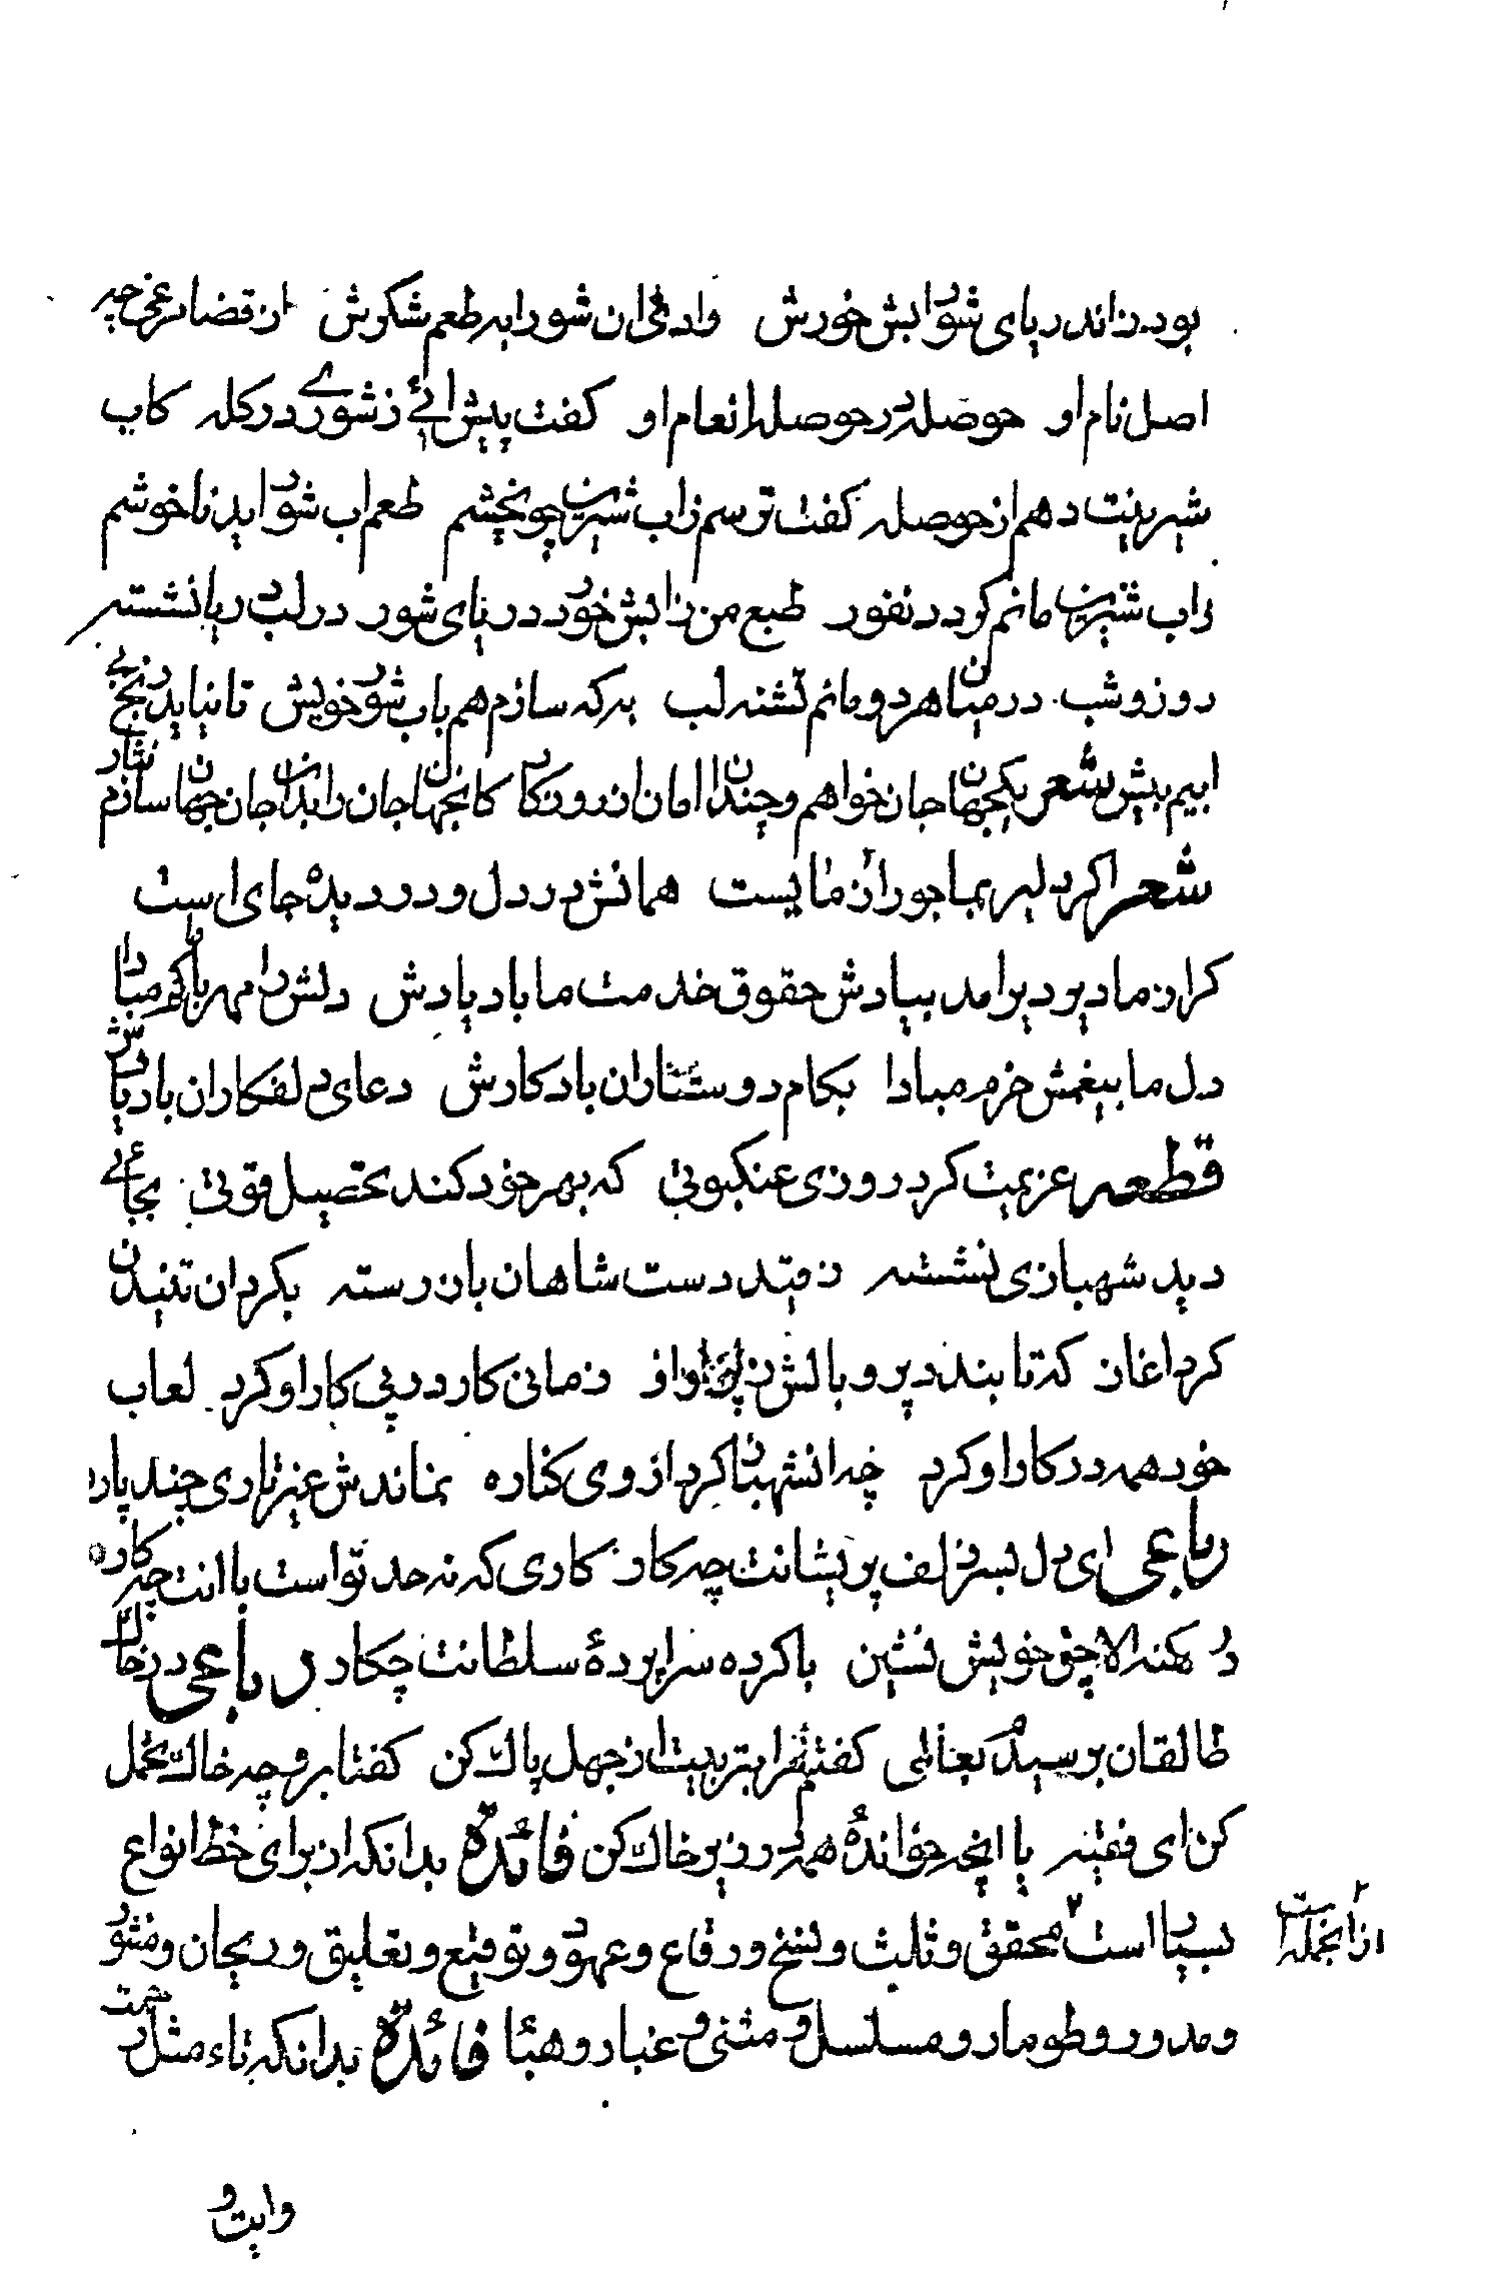 بود زاندریای شور ابش خورش دادی ان شورابه طعم شکرش از قضا مرغی چه
اصل نام او حوصله در حوصله انعام او کفت پیش ائے ز شورے در کله کاب
شیرینت دهم از حوصله کفت ترسم زاب شیرین چو بچشم طعم اب شور اید ناخوشم
زاب شیرین مانم کردد نفور طبع من ز ابش خور دریای شور در لب دریا نشسته
روز و شب در میان هر دو مانم تشنه لب به که سازم هم باب شور خویش تا نیاید رنج بے
ابیم پیش شعر یکجهان جان خواهم و چندان امان از روزکار کانجهان جان را بدان جان جهان سازم نثار
شعر اکر دلبر بما جور ازمایست همانش در دل و در دیده جای است
کز از ما دیر دیر امد بیادش حقوق خدمت ما باد یادش دلش را مهر با کم مبادا
دل ما بیغمش خرم مبادا بکام دوستاران باد کارش دعای دلفکاران باد یارش
قطعه عزیمت کرد روزی عنکبوتی که بهر خود کند تحصیل قوتی بجائے
دید شهبازی نشسته ز قید دست شاهان باز رسته بکرد ان تنیدن
کرد اغاز که تا بندد پر و بالش ز پرواز زمانی کار در پی کار او کرد لعاب
خود همه در کار او کرد چه انشهباز کرد از وی کناره نماندش غیر تاری چند پاره
رباعی ای دل بسر زلف پریشانت چه کار کاری که نه حد تو است با انت چه کار
در کهنه الاچق خویش نشین با کرده سراپردهٔ سلطانت چکار رباعی در خاک
طالقان برسیدم بعالمی کفتم مرا بتربیت از جهل پاک کن کفتا برو چه خاک تحمل
کن ای فقیه یا انچه خواندهٔ همه در زیر خاک کن فائدة بدانکه از برای خط انواع
بسیار است محقق و ثلث و نسخ و رقاع و عهود و توقیع و تعلیق و ریحان و منثور
از انجمله است
و مدور و طومار و مسلسل و مثنی و غبار و هبا فائدة بدانکه تاء مثل رحمت
و ابیت و